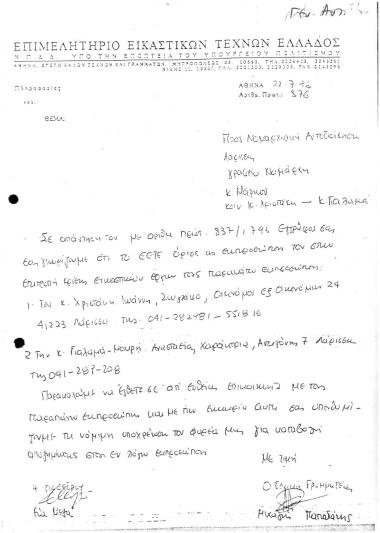 ΕΠΙΜΕΛΗΤΗΡΙΟ ΕΙΚΑΣΤΙΚΩΝ ΤΕΧΝΩΝ ΕΛΛΑΔΟΣ
Ν Π Δ Δ ΥΠΟ ΤΗΝ ΕΠΟΠΤΕΙΑ ΤΟΥ ΥΠΟΥΡΓΕΙΟΥ ΠΟΛΙΤΙΣΜΟΥ
Πληροφορίες
ΑΘΗΝΑ 22-7-96
τηλ.
Αριθμ. Πρωτ. 876
Προς Νομαρχιακή Αυτοδιοίκηση
Λάρισας
Γραφείο Νομάρχη
κ.
κ. Χριστάκη – κ. Γιαλαμά
Σε απάντηση του με αριθμ πρωτ. 837/ εγγράφου σας
σας γνωρίζουμε ότι το ΕΕΤΕ όρισε ως εκπροσώπους του στην
επιτροπή κρίσης εικαστικών έργων τους παρακάτω εκπροσώπους:
1. Τον κ. Χριστάκη Ιωάννη, Ζωγράφο, Οικονόμου εξ Οικονόμων 24
41223 Λάρισα της. 041-282481-551816
2 Την κ. Γιαλαμά-Μουρή Αναστασία, Χαράκτρια, Αντιγόνης 7 Λάρισα
Της 041-287-208
Παρακαλούμε να έλθετε σε απ ευθείας επικοινωνία με τους
παραπάνω εκπροσώπους και με την ευκαιρία αυτή σας υπενθυμί-
ζουμε τη νόμιμη υποχρέωση του φορέα σας για καταβολή
αποζημίωσης στον εν λόγω εκπρόσωπο
Με τιμή
Η Πρόεδρος
Ο Γραμματέας
Εύα Μελά
Μιχάλης Παπαδάκης